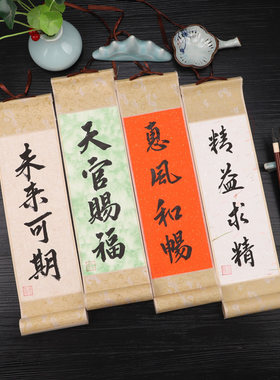 未来可期
天官賜福
惠風和暢
精益求精